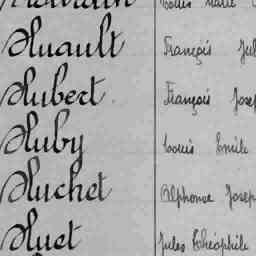 Louis Marie
Huault François Jul
Hubert François Josep
Huby Louis Emile
Huchet Alphonse Josep
Huet Jules Théophile